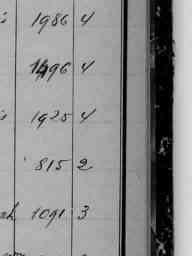 1986 4
1496 4
1925 4
815 2
1091 3